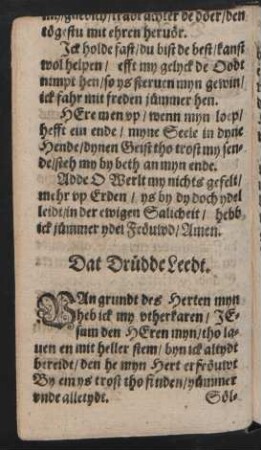 my/gnedich/tradt achter de döer/den
tögestu mit ehren hervör.
Ick holde fast/du bist de best/kanst
wol helpen/ efft my gelyck de Dodt
nimpt hen/so ys sterven myn gewin/
ick fahr mit freden jümmer hen.
HEre men vp/wenn myn loep/
hefft ein ende/ myne Seele in dyne
Hende/dynen Geist tho trost my sen-
de/steh my by beth an myn ende.
Adde O Werlt my nichts gefelt/
mehr vp Erden/ ys by dy doch ydel
leidt/in der ewigen Salicheit/ hebb
ick jümmer ydel Fröuwd/Amen.
Dat Drüdde Leedt.
VAn grundt des Herten myn
heb ick my vtherkaren/ JE-
sum den HEren myn/tho la-
uen en mit heller stem/byn ick altydt
bereidt/den he myn Hert erfröuwt
By em ys trost tho finden/yümmer
vnde alletydt. Söl-